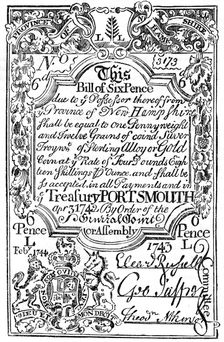 No
5173
6d
This
Bill of Six Pence
due to ye Possessor thereof from
ye Province of New Hampshire
shall be equal to one Pennyweight
and Twelve Grains of coin'd Silver
Troywt. of Sterling Alloy or Gold
Coin at ye Rate of Four Pounds Eigh
teen Shillings ye Ounce, and shall be
so accepted in all Payments and in
ye Treasury PORTSMOUTH
Apr. 3 1742 By Order of the
Genrl. Court
or Assembly
6
6
Pence
Pence
L
L
Feby. 1744
1743
Eleazr. Russell
Geo Jaffrey
Theodr. Atkinson
Committee
DIEU ET MON DROIT